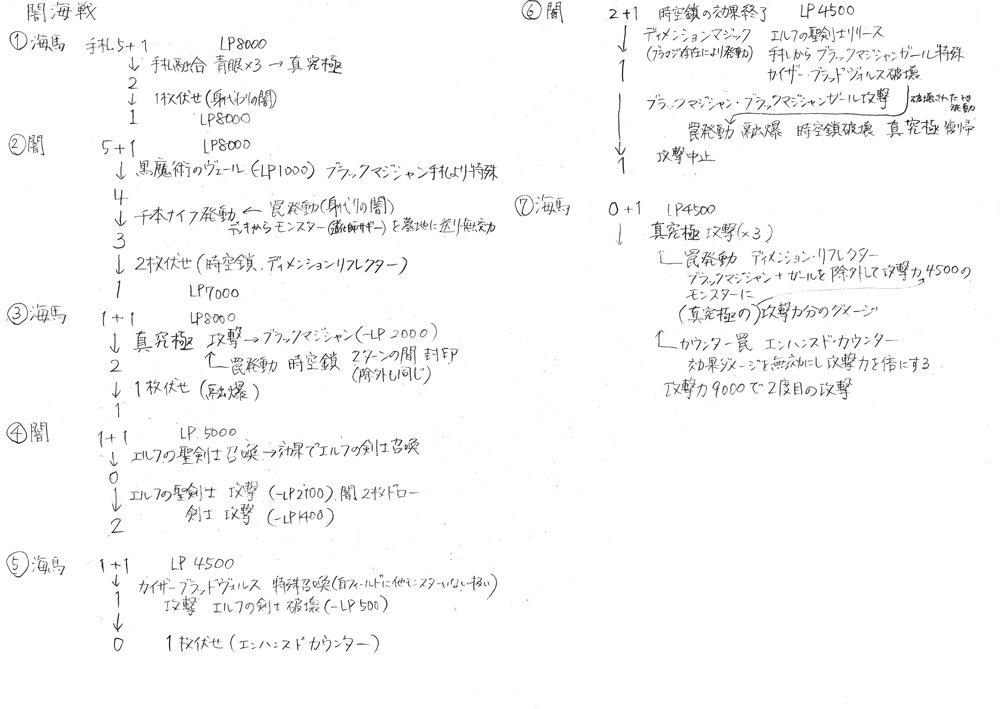 闇海戦
①海馬 手札5+1 LP8000
↓手札融合 青眼×3→真究極
2
↓1枚伏せ(身代わりの闇)
1 LP8000
②闇 5+1 LP8000
↓黒魔術のヴェール(-LP1000) ブラックマジシャン手札より特殊
4
↓千本ナイフ発動 ← 罠発動(身代りの闇)
デッキからモンスター()を墓地に送り無効
3
↓2枚伏せ(時空鎖、ディメンションリフレクター)
1 LP7000
③海馬 1+1 LP8000
↓真究極 攻撃→ブラックマジシャン(-LP2000)
2 罠発動 時空鎖 2ターンの間 封印
(除外も同じ)
↓1枚伏せ(融爆)
1
④闇 1+1 LP5000
↓エルフの聖剣士召喚→効果でエルフの剣士召喚
0
↓エルフの聖剣士 攻撃(-LP2100) 闇2枚ドロー
2 剣士 攻撃(-LP1400)
⑤海馬 1+1 LP4500
↓カイザーブラッドヴォルス 特殊召喚(自フィールドに他モンスターいない扱い)
1 攻撃 エルフの剣士破壊(-LP500)
↓
0 1枚伏せ(エンハンスドカウンター)
⑥闇 2+1 時空鎖の効果終了 LP4500
ディメンションマジック エルフの聖剣士リリース
(ブラマジ存在により発動) 手札からブラックマジシャンガール特殊
1 カイザーブラッドヴォルス破壊
ブラックマジシャン・ブラックマジシャンガール攻撃 破壊された時発動
罠発動 融爆 時空鎖破壊 真究極 復帰
1 攻撃中止
⑦海馬 0+1 LP4500
↓真究極 攻撃(×3)
罠発動 ディメンション・リフレクター
ブラックマジシャン+ガールを除外して攻撃力4500の
モンスターに
(真究極の)攻撃力分のダメージ
カウンター罠 エンハンスド・カウンター
効果ダメージを無効にし攻撃力を倍にする
攻撃力9000で2度目の攻撃